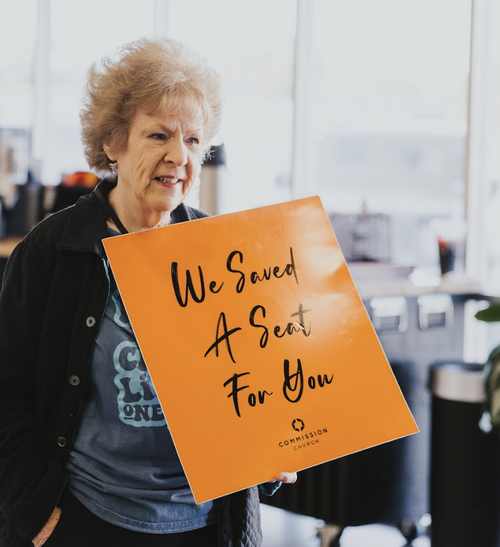 We Saved
A Seat
For You
COMMISSION
CHURCH
ONE